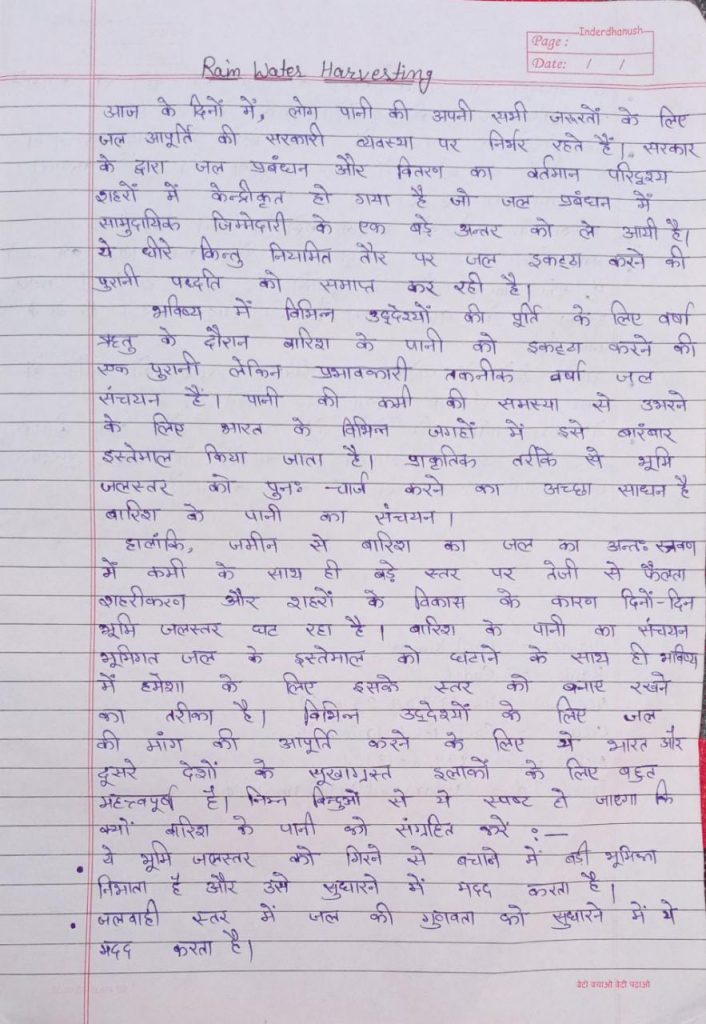 Inderdhanush
Page :
Date: / /
Rain Water Harvesting
आज के दिनों में, लोग पानी की अपनी सभी जरूरतों के लिए
जल आपूर्ति की सरकारी व्यवस्था पर निर्भर रहते हैं। सरकार
के द्वारा जल प्रबंधन और वितरण का वर्तमान परिदृश्य
शहरों में केन्द्रीकृत हो गया है जो जल प्रबंधन में
सामुदायिक जिम्मेदारी के एक बड़े अन्तर को ले आयी है।
ये धीरे किन्तु नियमित तौर पर जल इकट्ठा करने की
पुरानी पध्दति को समाप्त कर रही है।
भविष्य में विभिन्न उद्देश्यों की पूर्ति के लिए वर्षा
ऋतु के दौरान बारिश के पानी को इकट्ठा करने की
एक पुरानी लेकिन प्रभावकारी तकनीक वर्षा जल
संचयन हैं। पानी की कमी की समस्या से उभरने
के लिए भारत के विभिन्न जगहों में इसे बारंबार
इस्तेमाल किया जाता है। प्राकृतिक तरीके से भूमि
जलस्तर को पुनः चार्ज करने का अच्छा साधन है
बारिश के पानी का संचयन।
हालांकि, जमीन से बारिश का जल का अन्तः स्त्रवण
में कमी के साथ ही बड़े स्तर पर तेजी से फैलता
शहरीकरण और शहरों के विकास के कारण दिनों-दिन
भूमि जलस्तर घट रहा है। बारिश के पानी का संचयन
भूमिगत जल के इस्तेमाल को घटाने के साथ ही भविष्य
में हमेशा के लिए इसके स्तर को बनाए रखने
का तरीका है। विभिन्न उद्देश्यों के लिए जल
की मांग की आपूर्ति करने के लिए ये भारत और
दूसरे देशों के सूखाग्रस्त इलाकों के लिए बहुत
महत्त्वपूर्ण है। निम्न बिन्दुओं से ये स्पष्ट हो जाएगा कि
क्यों बारिश के पानी को संग्रहित करें :—
• ये भूमि जलस्तर को गिरने से बचाने में बड़ी भूमिका
निभाता है और उसे सुधारने में मदद करता है।
• जलवाही स्तर में जल की गुणवता को सुधारने में ये
मदद करता है।
बेटी बचाओ बेटी पढ़ाओ